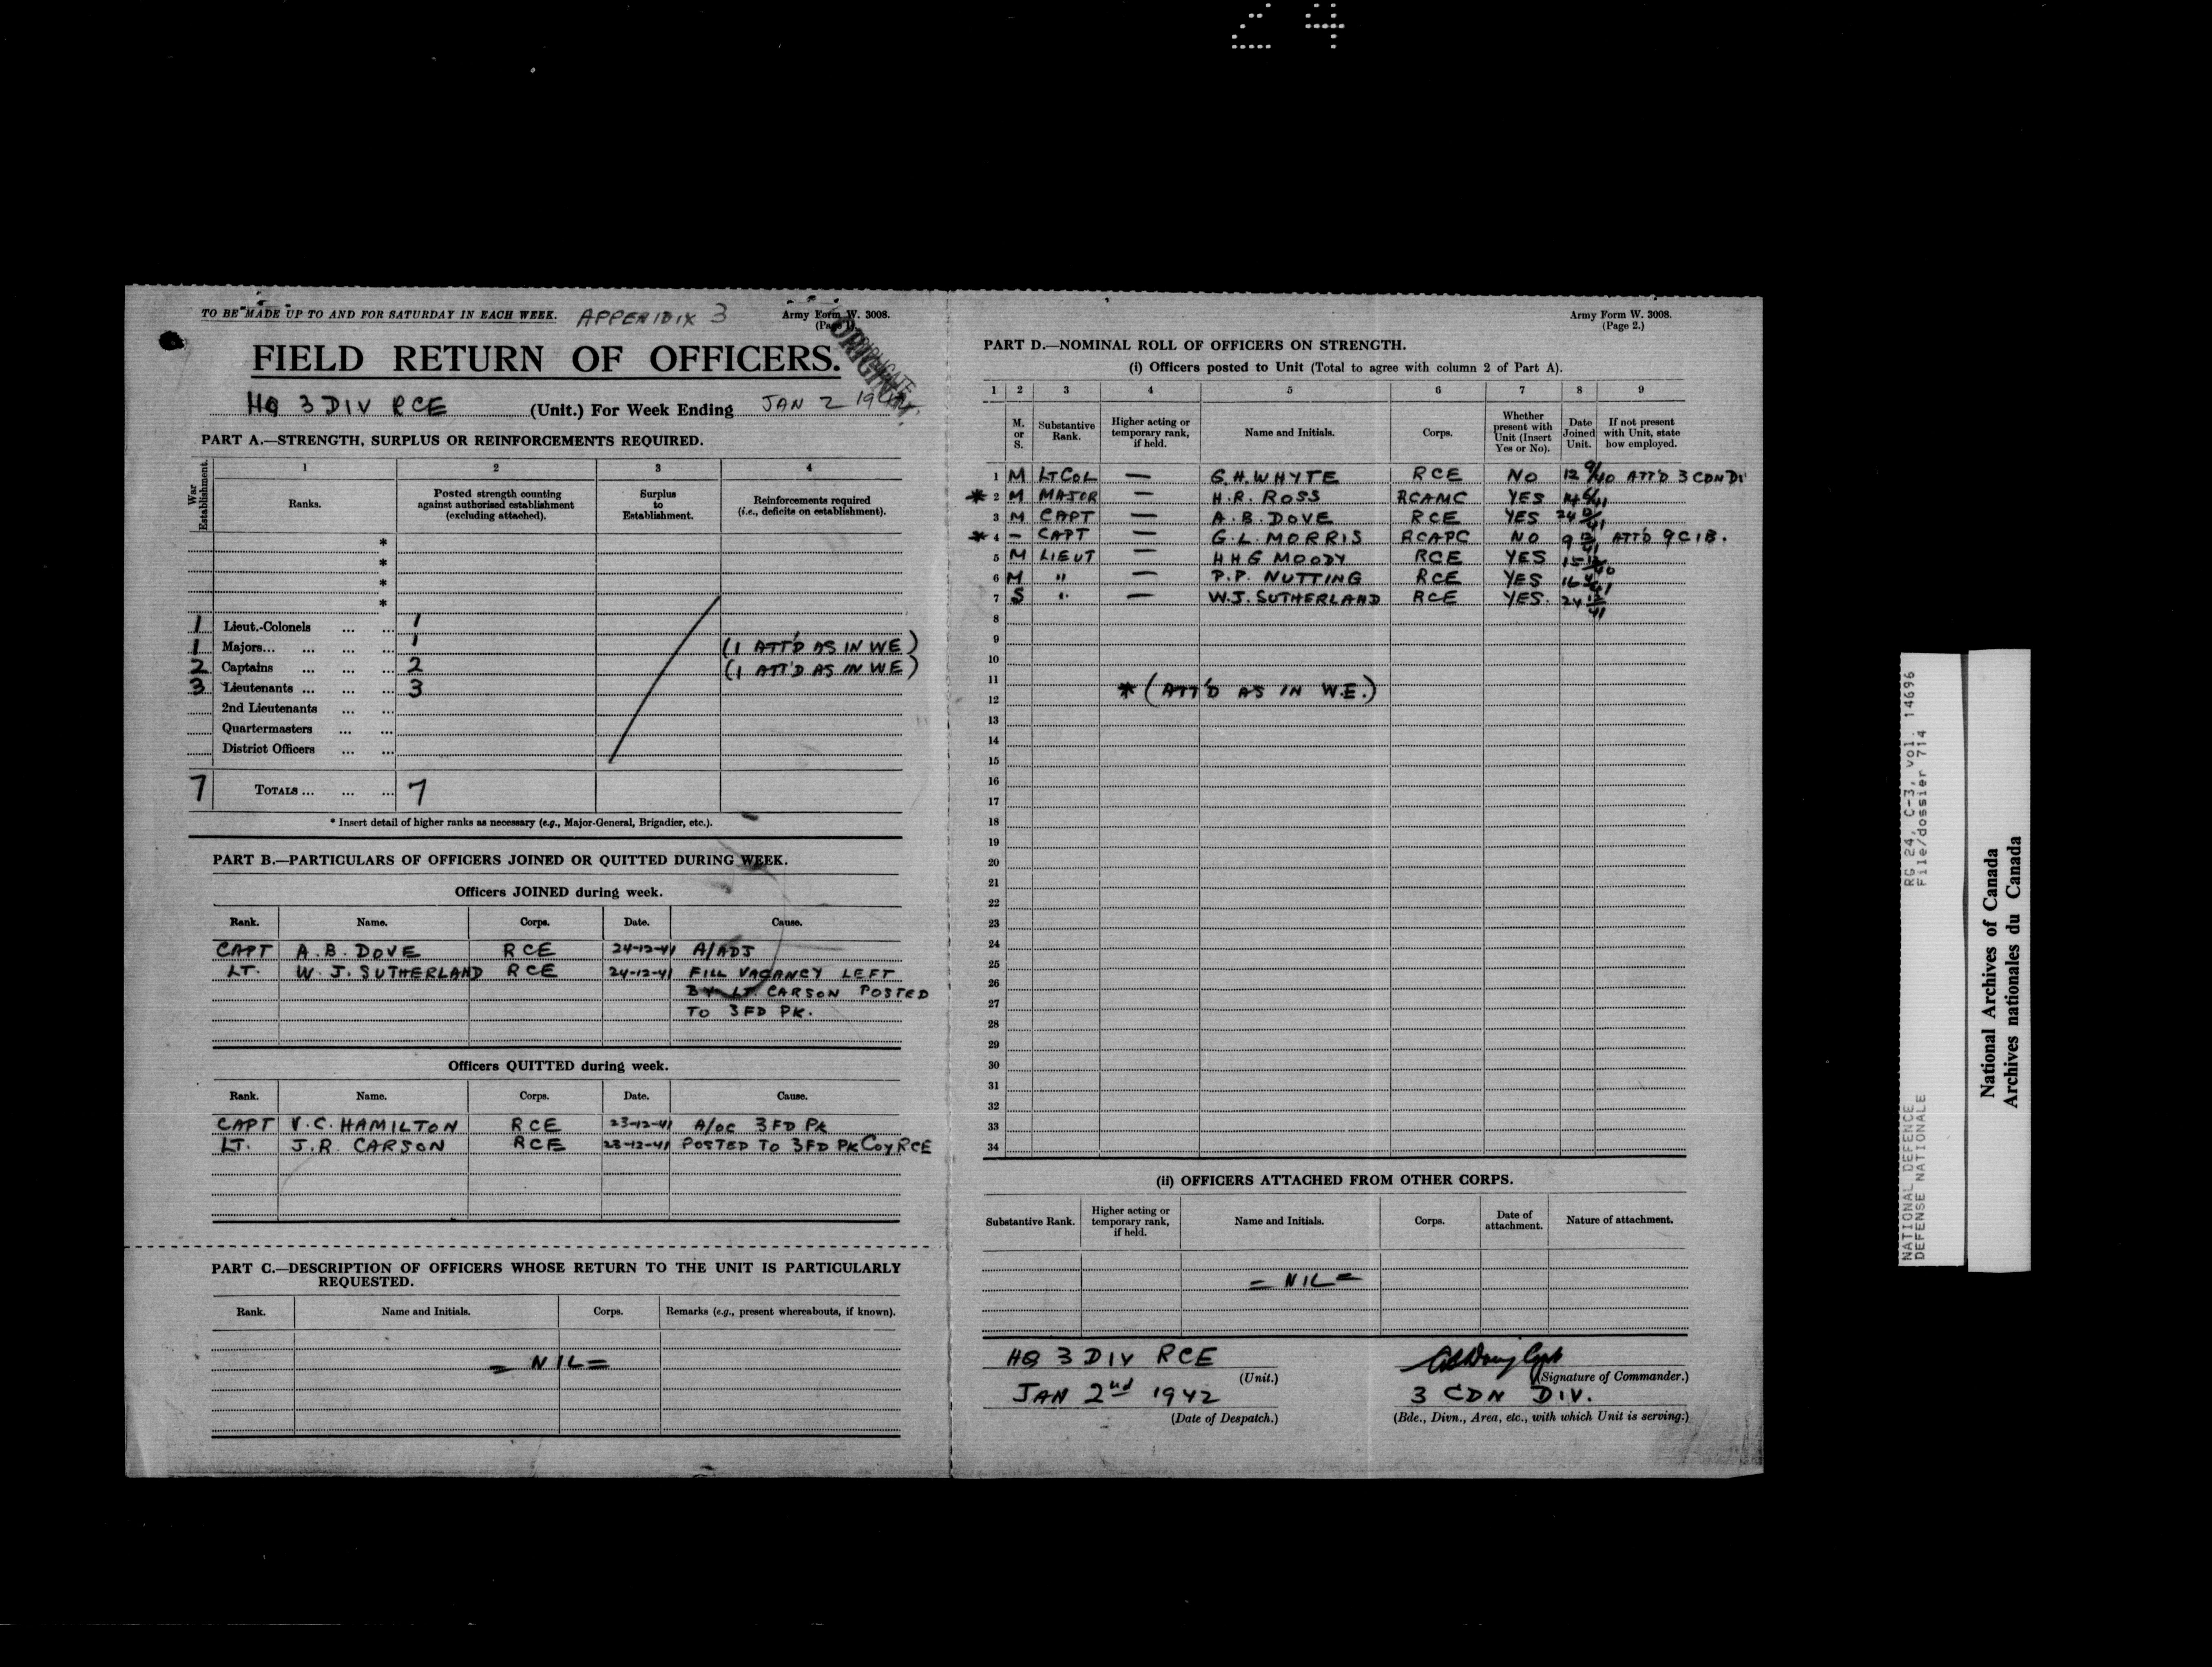 24
TO BE MADE UP TO AND FOR SATURDAY IN EACH WEEK. APPENIDIX 3 Army Form W. 3008.
(Page 1)
ORIGINAL
DUPLICATE
FIELD RETURN OF OFFICERS.
HQ 3 DIV RCE (Unit.) For Week Ending JAN 2
PART A.—STRENGTH, SURPLUS OR REINFORCEMENTS REQUIRED.
War Establishment.
1 2 3 4
Ranks. Posted strength counting against authorised establishment (excluding attached). Surplus to Establishment. Reinforcements required (i.e., deficits on establishment).
*
*
*
*
1 Lieut.-Colonels ... ... 1
1 Majors... ... ... ... 1 (1 ATT'D AS IN WE)
2 Captains ... ... ... 2 (1 ATT'D AS IN WE)
3 Lieutenants ... ... ... 3
2nd Lieutenants ... ...
Quartermasters ... ...
District Officers ... ...
7 TOTALS ... ... ... 7
* Insert detail of higher ranks as necessary (e.g., Major-General, Brigadier, etc.).
PART B.—PARTICULARS OF OFFICERS JOINED OR QUITTED DURING WEEK.
Officers JOINED during week.
Rank. Name. Corps. Date. Cause.
CAPT A.B. DOVE RCE 24-12-41 A/ADJ
LT. W.J. SUTHERLAND RCE 24-12-41 FILL VACANCY LEFT
BY LT. CARSON POSTED
TO 3 FD PK.
Officers QUITTED during week.
Rank. Name. Corps. Date. Cause.
CAPT V.C. HAMILTON RCE 23-12-41 A/OC 3 FD PK
LT. J.R. CARSON RCE 23-12-41 POSTED TO 3 FD PK COY RCE
PART C.—DESCRIPTION OF OFFICERS WHOSE RETURN TO THE UNIT IS PARTICULARLY
REQUESTED.
Rank. Name and Initials. Corps. Remarks (e.g., present whereabouts, if known).
= NIL =
Army Form W. 3008.
(Page 2.)
PART D.—NOMINAL ROLL OF OFFICERS ON STRENGTH.
(i) Officers posted to Unit (Total to agree with column 2 of Part A).
1 2 3 4 5 6 7 8 9
M. or S. Substantive Rank. Higher acting or temporary rank, if held. Name and Initials. Corps. Whether present with Unit (Insert Yes or No). Date Joined Unit. If not present with Unit, state how employed.
1 M LT COL — G.H. WHYTE RCE NO 12 9/40 ATT'D 3 CDN DI
* 2 M MAJOR — H.R. ROSS RCAMC YES 14
3 M CAPT — A.B. DOVE RCE YES 24 12/41
* 4 – CAPT — G.L. MORRIS RCAPC NO 9 12/41 ATT'D 9 CIB.
5 M LIEUT — H H G MOODY RCE YES 15
6 M " — P.P. NUTTING RCE YES 16
7 S " — W.J. SUTHERLAND RCE YES. 24 12/41
8
9
10
11
12 * (ATT'D AS IN W.E.)
13
14
15
16
17
18
19
20
21
22
23
24
25
26
27
28
29
30
31
32
33
34
(ii) OFFICERS ATTACHED FROM OTHER CORPS.
Substantive Rank. Higher acting or temporary rank, if held. Name and Initials. Corps. Date of attachment. Nature of attachment.
= NIL =
HQ 3 DIV RCE
(Unit.) (Signature of Commander.)
JAN 2nd 1942 3 CDN DIV.
(Date of Despatch.) (Bde., Divn., Area, etc., with which Unit is serving.)
NATIONAL DEFENCE RG 24, C-3, vol. 14696
DEFENSE NATIONALE File/dossier 714
National Archives of Canada
Archives nationales du Canada